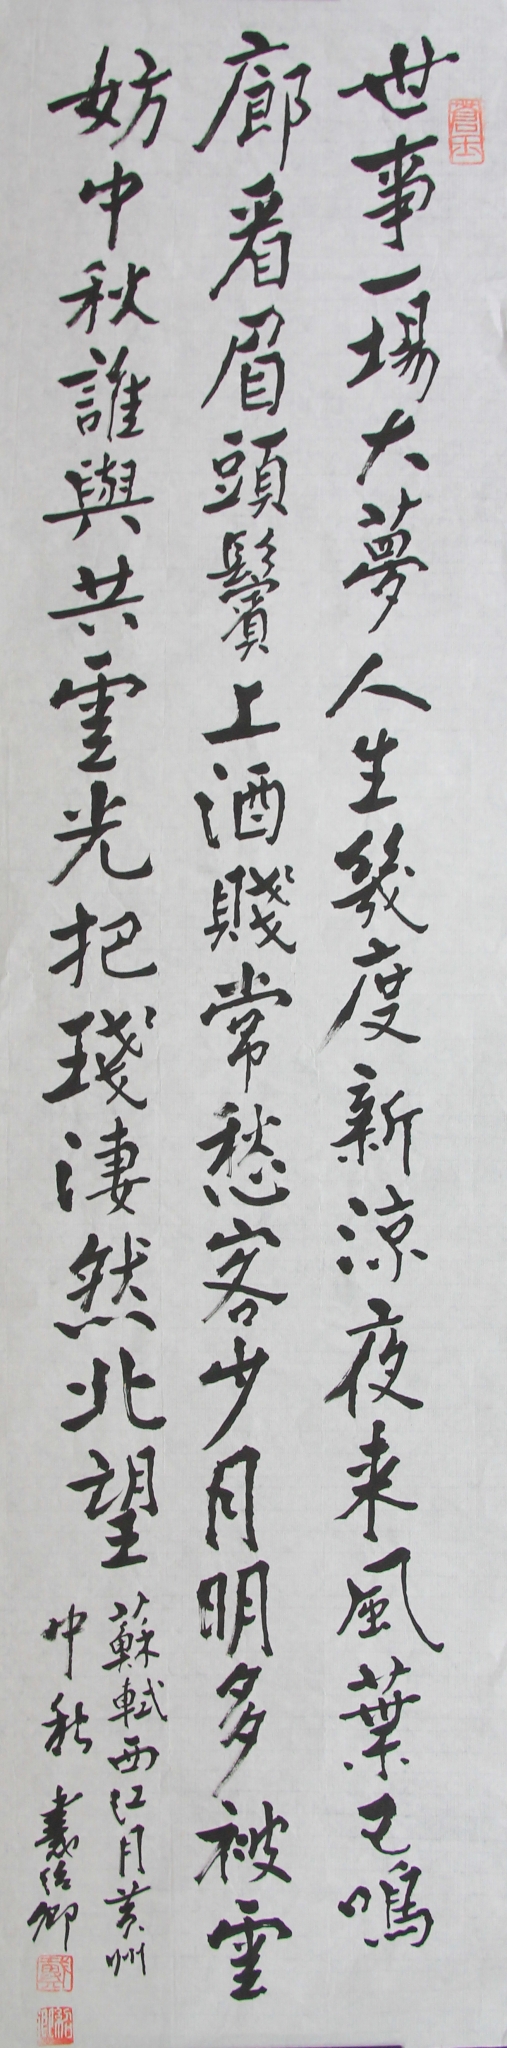 世事一場大夢人生幾度新涼夜来風葉已鳴
廊看眉頭鬢上酒賤常愁客少月明多被雲
妨中秋誰與共雲光把琖淒然北望
蘇軾西江月黄州
中秋 紹卿